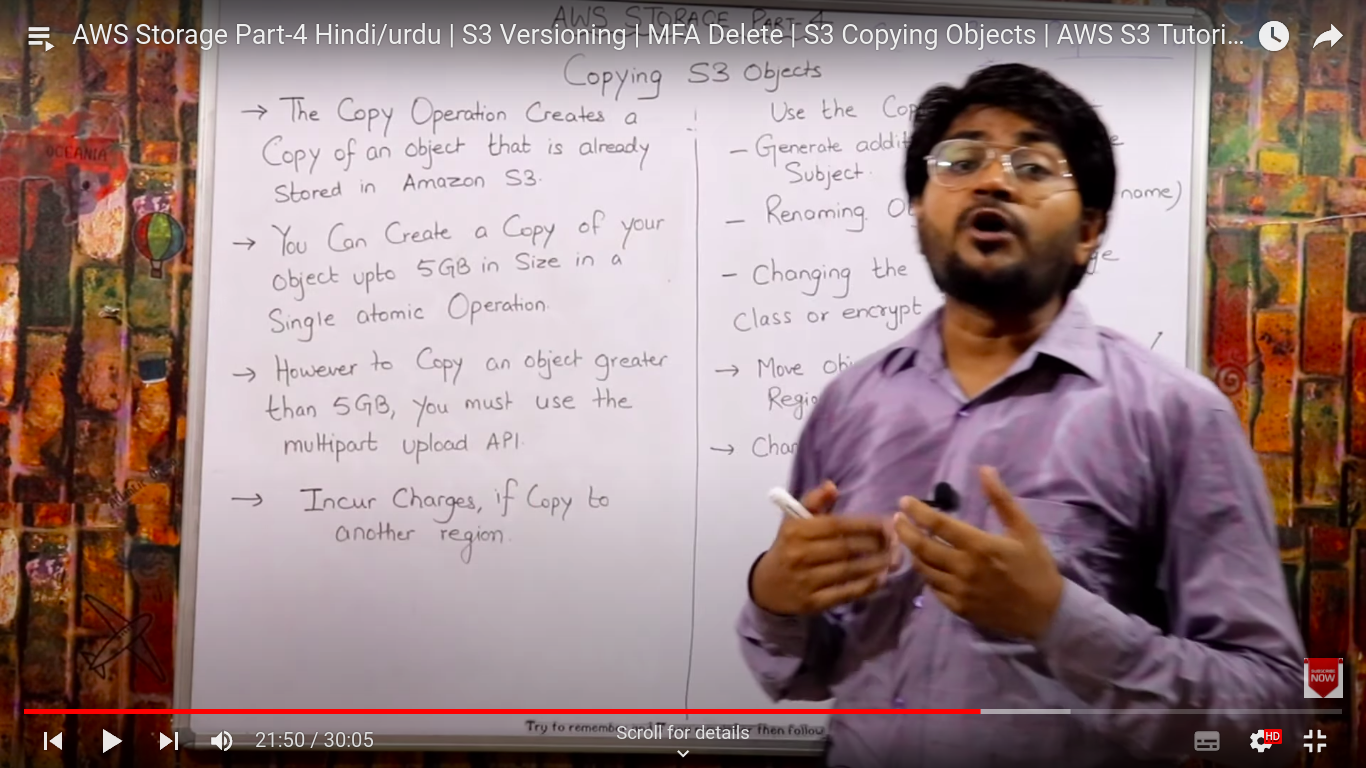 AWS Storage Part-4 Hindi/urdu | S3 Versioning | MFA Delete | S3 Copying Objects | AWS S3 Tutori...
AWS STORAGE PART-4
Copying S3 Objects
→ The Copy Operation Creates a
Copy of an object that is already
Stored in Amazon S3.
→ You Can Create a Copy of your
object upto 5GB in Size in a
Single atomic Operation.
→ However to Copy an object greater
than 5GB, you must use the
multipart upload API.
→ Incur Charges, if Copy to
another region.
Use the
- Generate
Subject.
- Renaming
name)
- Changing the
Class or encrypt
→ Move
→
OCEANIA
SUBSCRIBE
NOW
Try to remember and
then follow
21:50 / 30:05
Scroll for details
HD